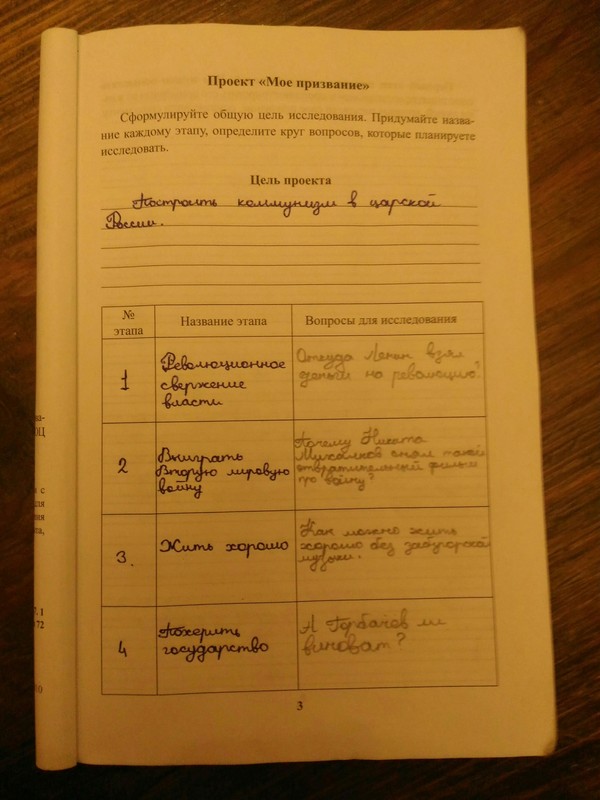 Проект «Мое призвание»
Сформулируйте общую цель исследования. Придумайте назва-
ние каждому этапу, определите круг вопросов, которые планируете
исследовать.
Цель проекта
Построить коммунизм в царской
России.
№
этапа
Название этапа
Вопросы для исследования
1
Революционное
свержение
власти
Откуда Ленин взял
деньги на революцию?
2
Выиграть
Вторую мировую
войну
Почему Никита
Михалков снял такой
отвратительный фильм
про войну?
3.
Жить хорошо
Как можно жить
хорошо без забугорской
музыки.
4
Похерить
государство
А Горбачёв ли
виноват?
3
на-
ОЦ
с
для
ния
та,
7. 1
72